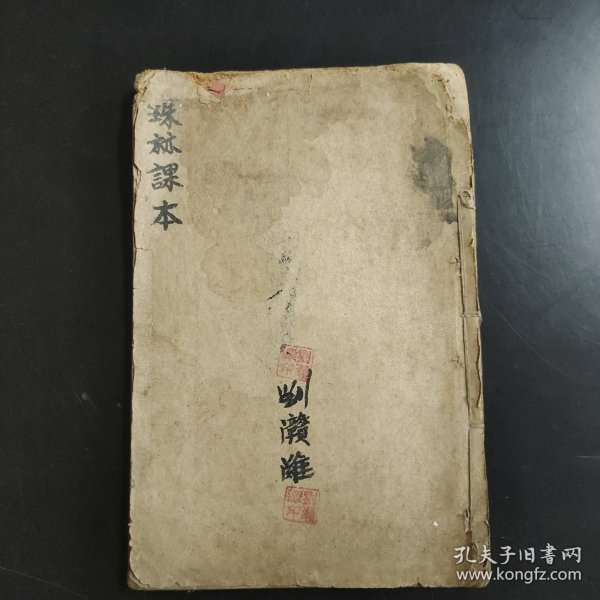 珠林課本
劉灒雄
孔夫子旧书网
www.kongfz.com